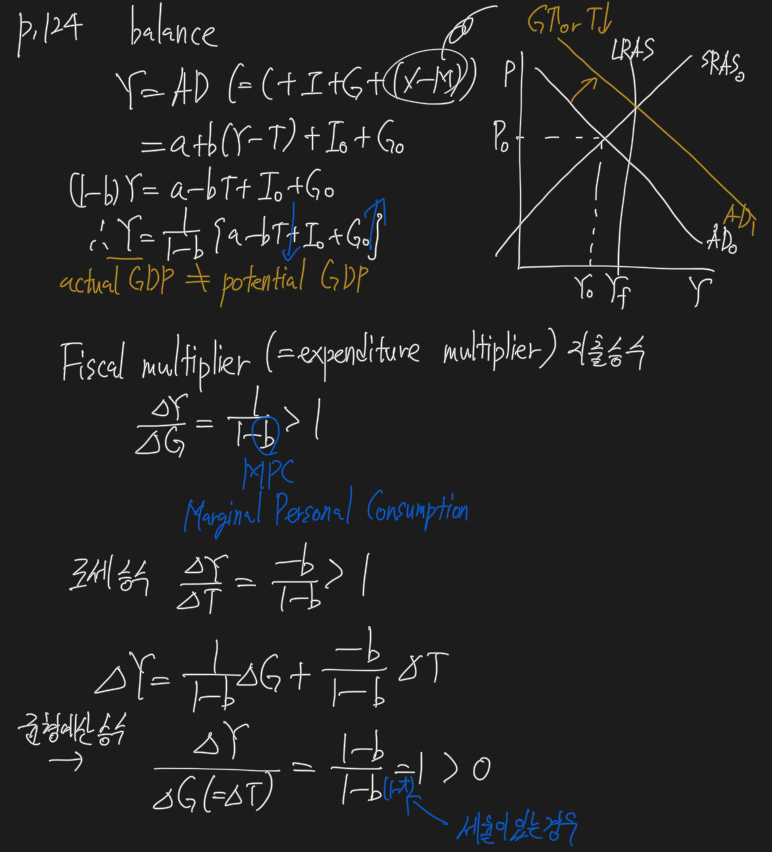 p.124 balance
Y = AD (= C + I + G + (X-M))
= a+b(Y-T) + I₀ + G₀
(1-b)Y = a-bT + I₀ + G₀
∴ Y = 1/(1-b) {a-bT + I₀ + G₀}
actual GDP ≠ potential GDP
G↑ or T↓
P
LRAS
SRAS₀
P₀
AD₁
AD₀
Y₀ Yf Y
Fiscal multiplier (=expenditure multiplier) 지출승수
ΔY/ΔG = 1/(1-b) > 1
MPC
Marginal Personal Consumption
조세승수 ΔY/ΔT = -b/(1-b) > 1
ΔY = 1/(1-b) ΔG + -b/(1-b) ΔT
균형예산승수
→ ΔY/ΔG(=ΔT) = (1-b)/(1-b(1-t)) = 1 > 0
세율이 있는 경우